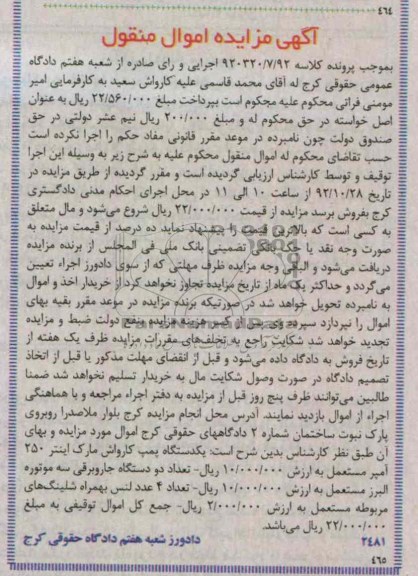 ۴۶۴
آگهی مزایده اموال منقول
بموجب پرونده کلاسه ۹۲۰۳۲۰/۷/۹۲ اجرایی و رای صادره از شعبه هفتم دادگاه
عمومی حقوقی کرج له آقای محمد قاسمی علیه کارواش سعید به کارفرمایی امیر
مومنی فراتی محکوم علیه محکوم است بپرداخت مبلغ ۲۲/۵۶۰/۰۰۰ ریال به عنوان
اصل خواسته در حق محکوم له و مبلغ ۲۰۰/۰۰۰ ریال نیم عشر دولتی در حق
صندوق دولت چون نامبرده در موعد مقرر قانونی مفاد حکم را اجرا نکرده است
حسب تقاضای محکوم له اموال منقول محکوم علیه به شرح زیر به وسیله این اجرا
توقیف و توسط کارشناس ارزیابی گردیده است و مقرر گردیده از طریق مزایده در
تاریخ ۹۲/۱۰/۲۸ از ساعت ۱۰ الی ۱۱ در محل اجرای احکام مدنی دادگستری
کرج بفروش برسد مزایده از قیمت ۲۲/۰۰۰/۰۰۰ ریال شروع می‌شود و مال متعلق
به کسی است که بالاترین قیمت را پیشنهاد نماید ده درصد از قیمت مزایده به
صورت وجه نقد یا چک بانکی تضمینی بانک ملی فی المجلس از برنده مزایده
دریافت می‌شود و الباقی وجه مزایده ظرف مهلتی که از سوی دادورز اجراء تعیین
می‌گردد و حداکثر یک ماه از تاریخ مزایده تجاوز نخواهد کرد از خریدار اخذ و اموال
به نامبرده تحویل خواهد شد در صورتیکه برنده مزایده در موعد مقرر بقیه بهای
اموال را نپردازد سپرده وی پس از کسر هزینه مزایده بنفع دولت ضبط و مزایده
تجدید خواهد شد شکایت راجع به تخلف‌های مقررات مزایده ظرف یک هفته از
تاریخ فروش به دادگاه داده می‌شود و قبل از انقضای مهلت مذکور یا قبل از اتخاذ
تصمیم دادگاه در صورت وصول شکایت مال به خریدار تسلیم نخواهد شد ضمنا
طالبین می‌توانند ظرف پنج روز قبل از مزایده به دفتر اجراء مراجعه و با هماهنگی
اجراء از اموال بازدید نمایند. آدرس محل انجام مزایده کرج بلوار ملاصدرا روبروی
پارک نبوت ساختمان شماره ۲ دادگاههای حقوقی کرج اموال مورد مزایده و بهای
آن طبق نظر کارشناس بدین شرح است: یکدستگاه پمپ کارواش مارک اینتر ۲۵۰
آمپر مستعمل به ارزش ۱۰/۰۰۰/۰۰۰ ریال- تعداد دو دستگاه جاروبرقی سه موتوره
البرز مستعمل به ارزش ۱۰/۰۰۰/۰۰۰ ریال- تعداد ۴ عدد لنس بهمراه شلینگ‌های
مربوطه مستعمل به ارزش ۲/۰۰۰/۰۰۰ ریال- جمع کل اموال توقیفی به مبلغ
۲۲/۰۰۰/۰۰۰ ریال می‌باشد.
۳۴۸۱ دادورز شعبه هفتم دادگاه حقوقی کرج
۴۶۵